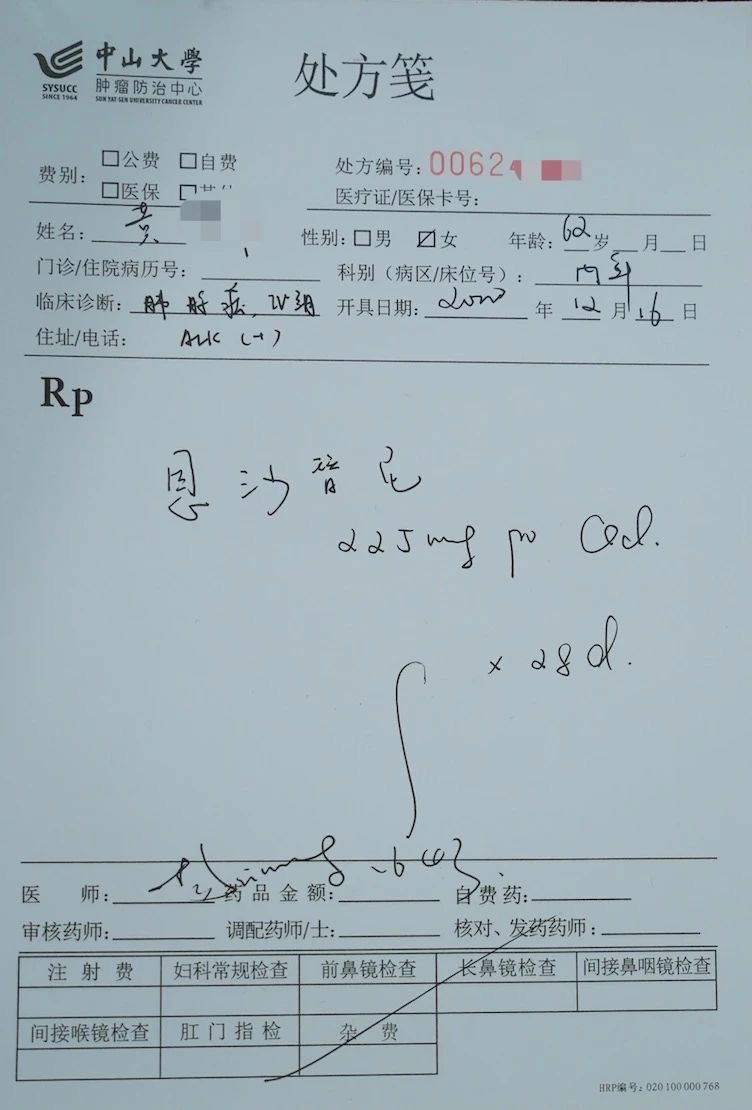 中山大學
肿瘤防治中心
SYSUCC
SINCE 1964
SUN YAT-SEN UNIVERSITY CANCER CENTER
处方笺
费别: □公费 □自费
□医保
处方编号: 0062
医疗证/医保卡号:
姓名: 黄 性别: □男 ☑女 年龄: 62岁 月 日
门诊/住院病历号: 科别(病区/床位号): 内科
临床诊断: 肺腺癌, IV期 开具日期: 2020 年 12 月 16 日
住址/电话: ALK (+)
Rp
恩沙替尼
225mg po Qd.
× 28d.
医 师: 药品金额: 自费药:
审核药师: 调配药师/士: 核对、发药药师:
注射费 妇科常规检查 前鼻镜检查 长鼻镜检查 间接鼻咽镜检查
间接喉镜检查 肛门指检 杂 费
HRP编号: 020 100 000 768